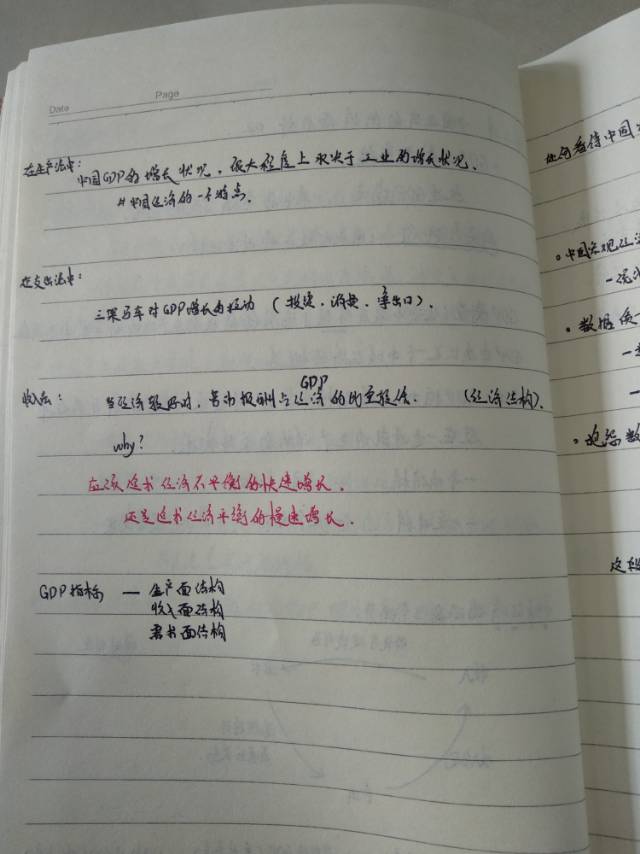 Date
Page
在生产法中：
中国GDP的增长状况，很大程度上取决于工业的增长状况。
#中国经济的一个特点。
在支出法中：
三架马车对GDP增长的拉动（投资、消费、净出口）。
收入法：
当经济较好时，劳动报酬占GDP的比重较低．（经济结构）．
why?
应该追求经济不平衡的快速增长．
还是追求经济平衡的慢速增长．
GDP指标 — 生产面结构
收入面结构
需求面结构
如何看待中国
。中国宏观经济
。数据质